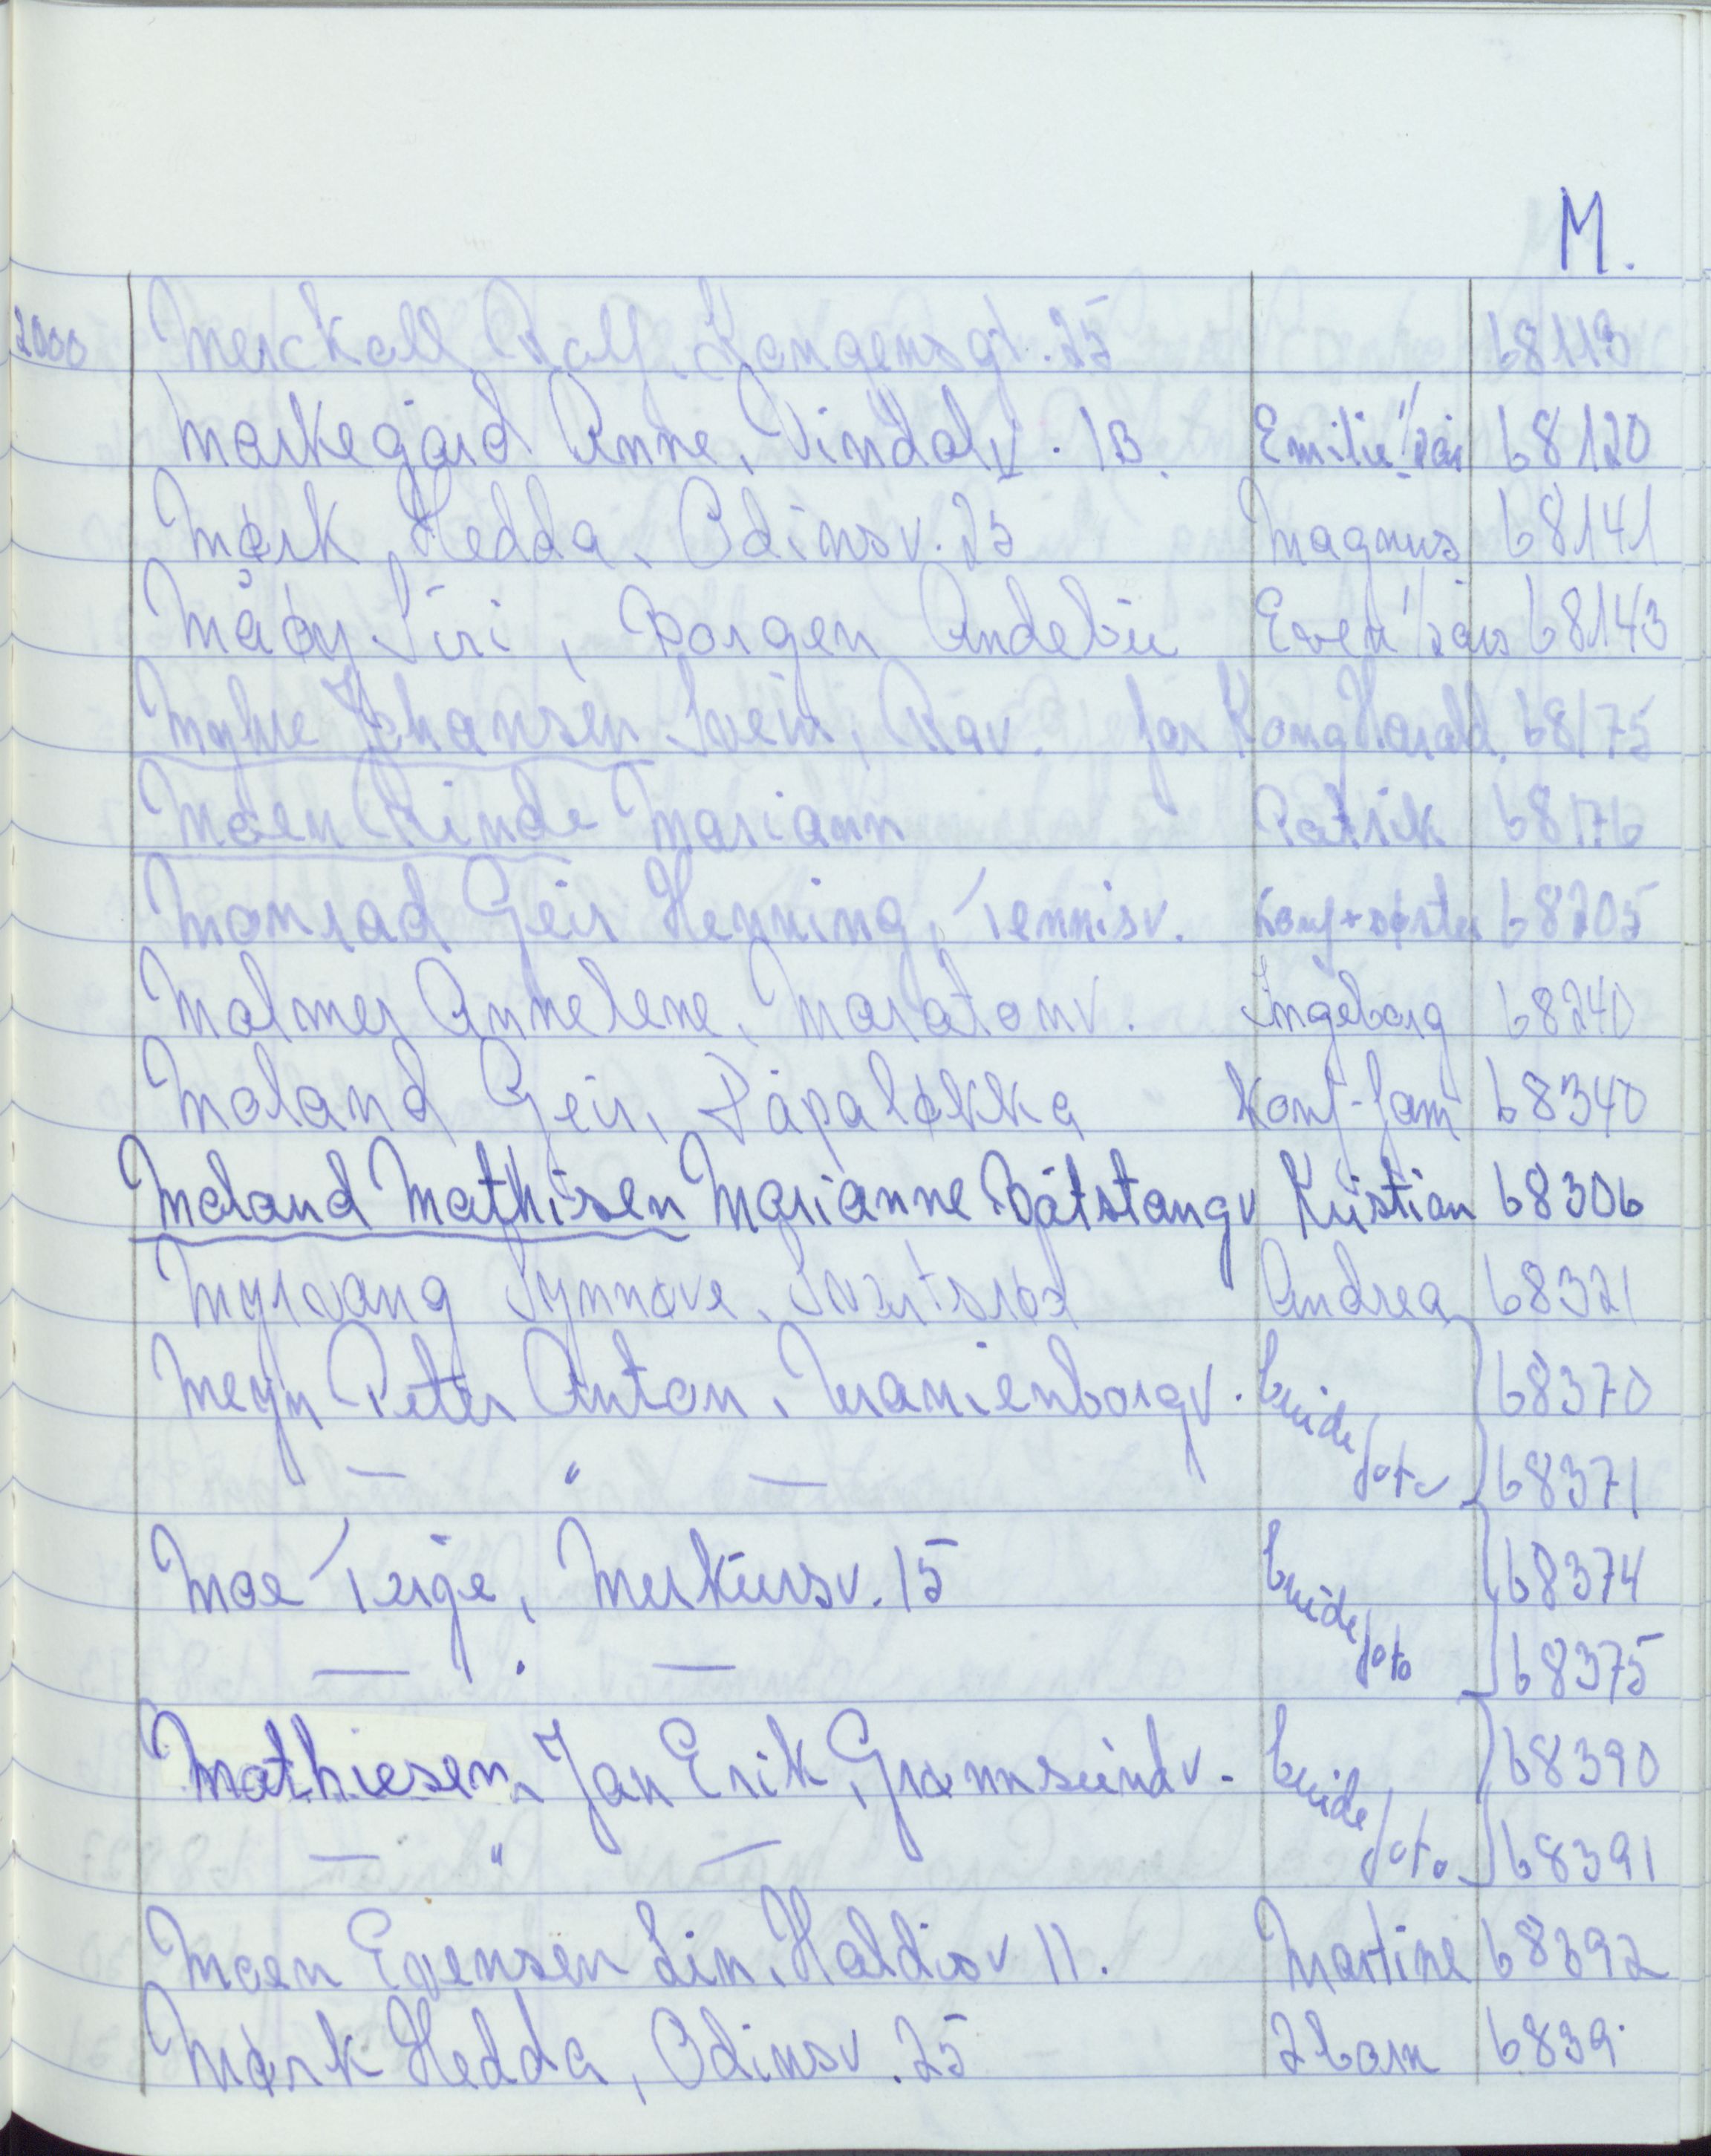 M.
2000 Merckoll Rolf, Kongensgt. 25 68119
Markegård Anne, Vindalv. 1B. Emilie 1/2 år 68120
Mørk Hedda, Odinsv. 25 Magnus 68141
Måøy Siri, Borgen Andebu Even 1/2 års 68143
Myhre Johansen Svein, Råv. for Kong Harald. 68175
Moen Rinde Mariann Patrik 68176
Monrad Geir Henning, Tennisv. Konf + søster 68205
Malmer Annelene, Maratonv. Ingeborg 68240
Moland Geir, Råpaløkka Konf-fam 68340
Moland Mathisen Marianne Båtstangv Kristian 68306
Myrvang Synnøve, Svartsrød Andrea 68321
Meyn Peter Anton, Maríenborgv. brude 68370
— " — foto 68371
Moe Terje, Merkursv. 15 brude 68374
— " — foto 68375
Mathiesen, Jan Erik, Grannsundv. brude 68390
— " — foto 68391
Moen Evensen Lin, Haldisv 11. Martine 68392
Mørk Hedda, Odinsv. 25 2 barn 6839